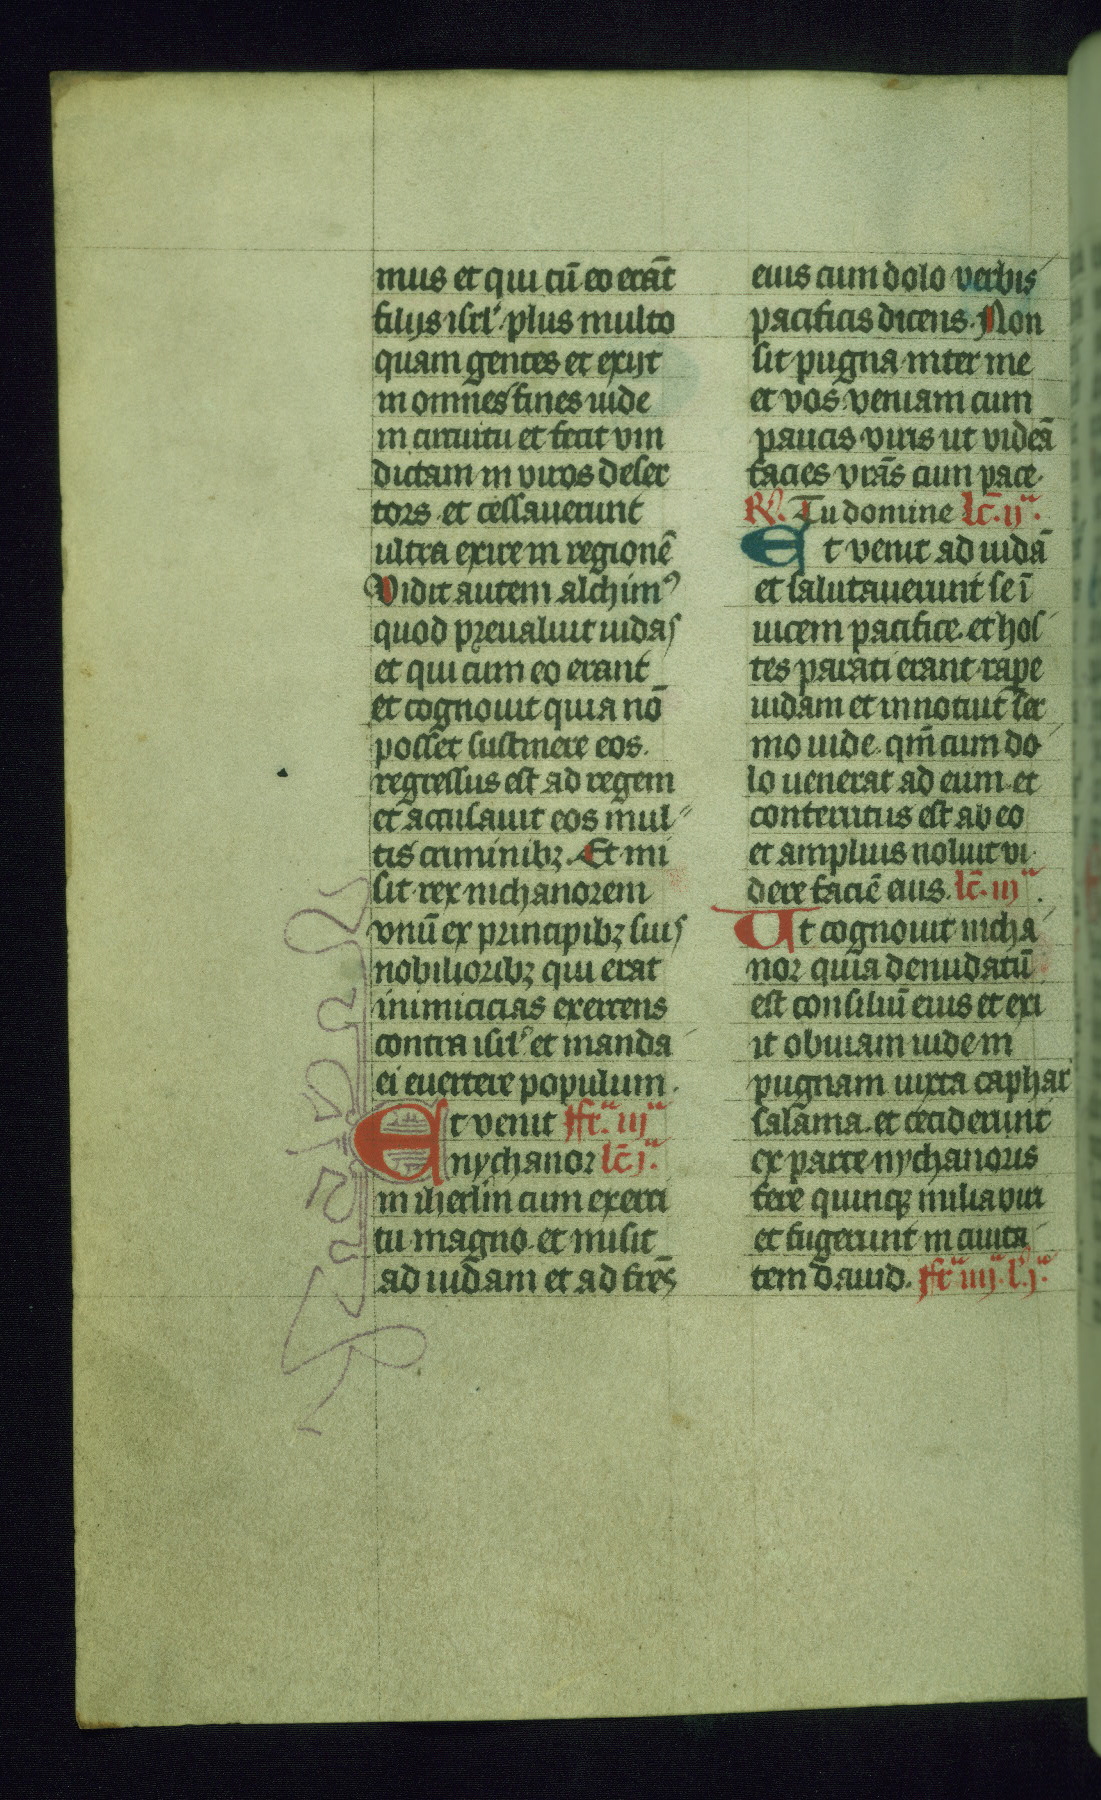 mus et qui cū eo erāt
filijs isrl' plus multo
quam gentes et exijt
in omnes fines iude
in circuitu et fecit vin
dictam in viros deser
tors et cessauerunt
ultra exire in regionē
Vidit autem alchimꝰ
quod preualuit iudas
et qui cum eo erant
et cognouit quia nō
posset sustinere eos.
regressus est ad regem
et accusauit eos mul
tis criminibꝫ. Et mi
sit rex nichanorem
vnū ex principibꝫ suis
nobilioribꝫ qui erat
inimicicias exercens
contra isil' et manda
ei euertere populum.
Et venit ffr͞a iij͞a
nychanor lc̄. j͞a.
in iherlm̄ cum exerci
tu magno et misit
ad iudam et ad frēs
eius cum dolo verbis
pacificis dicens. Non
sit pugna inter me
et vos veniam cum
paucis viris ut videā
facies vrās cum pace.
R̸. Tu domine lc̄. ij͞a.
Et venit ad iudā
et salutauerunt se ī
uicem pacifice. et hos
tes parati erant rape
iudam et innotuit ser
mo iude. qm̄ cum do
lo uenerat ad eum et
conterritus est ab eo
et amplius noluit vi
dere faciē eius. lc̄. iij͞a.
Ut cognouit nicha
nor quia denudatū
est consiliū eius et exi
it obuiam iude in
pugnam iuxta caphar
salama. et ceciderunt
ex parte nychanoris
fere quinqꝫ milia viri
et fugerunt in ciuita
tem dauid. ffr͞a iiij͞a. l'. j͞a.